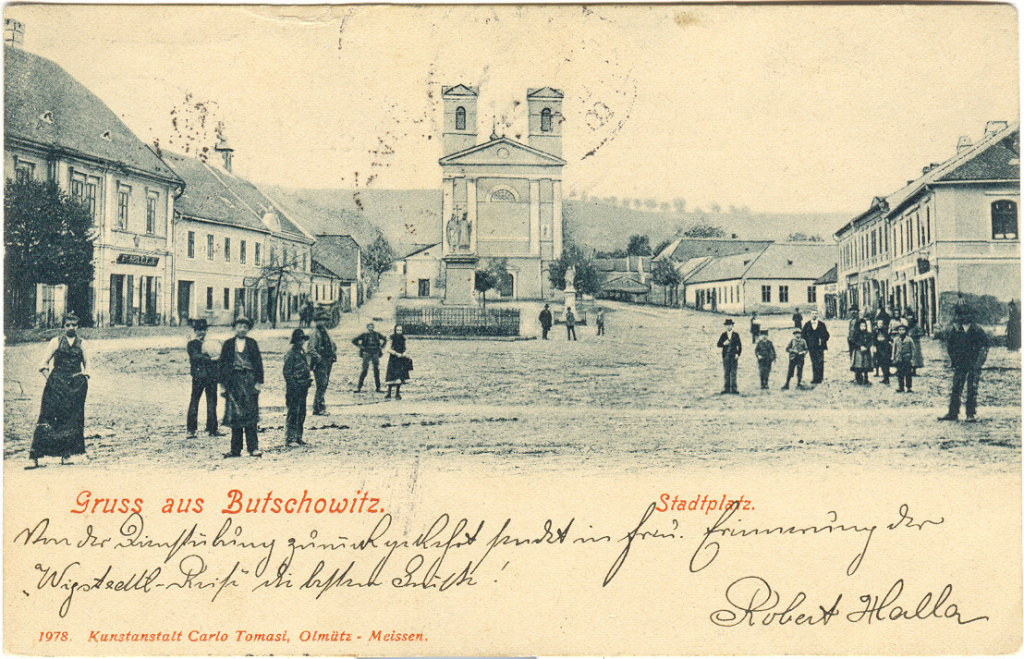 Gruss aus Butschowitz.
Stadtplatz.
Von der Dienstübung zurückgekehrt sendet in freu. Erinnerung der
"Wigstadtl-Reise" die besten Grüße!
Robert Halla
1978. Kunstanstalt Carlo Tomasi, Olmütz - Meissen.